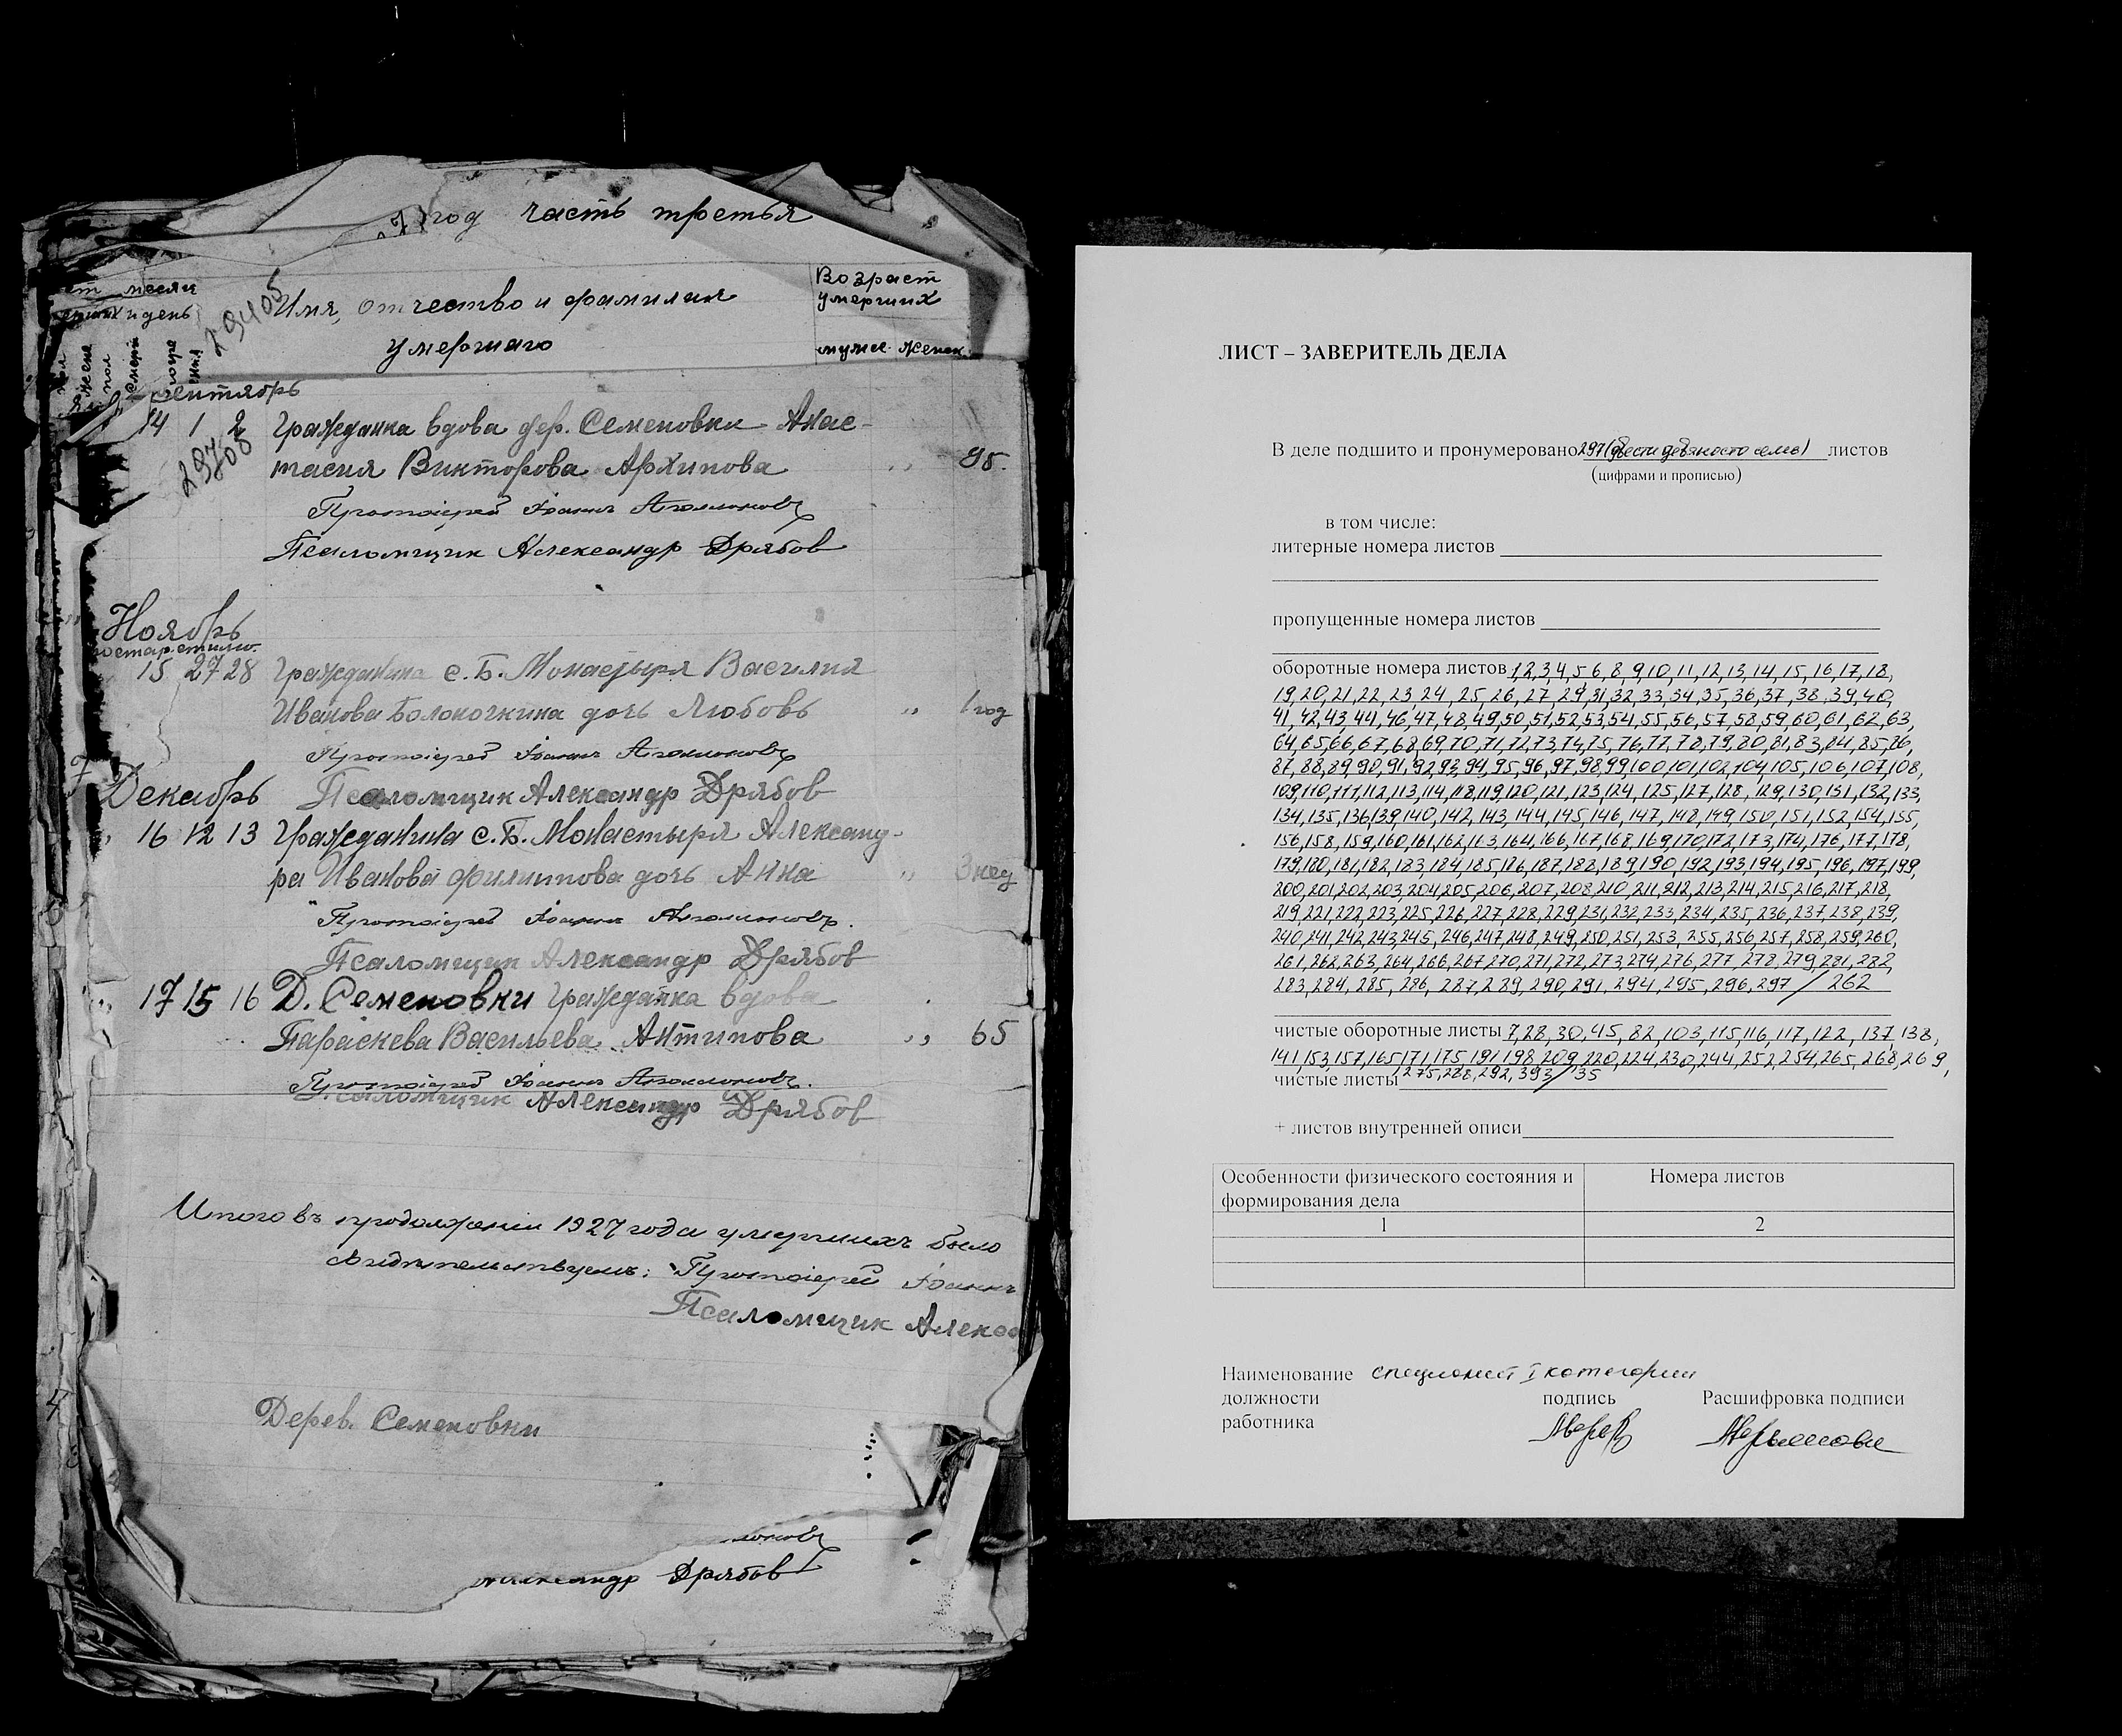 год часть третья
месяц
и день
Имя, отчество и фамилия
умершаго
Возраст
умерших
мужс. женск.
29405
сентябрь
14 1 2 Гражданка вдова дер. Семеновки Анас-
тасия Викторова Архипова „ 95.
297
Протоіерей Іоаннъ Аполлоновъ
Псаломщик Александр Дрябов
Ноябрь
по стар. стилю.
15 27 28 Гражданина с. Б. Монастыря Василия
Иванова Болоночкина дочь Любовь „ 1 год
Протоіерей Іоаннъ Аполлоновъ
Декабрь Псаломщик Александр Дрябов
16 12 13 Гражданина с. Б. Монастыря Александ-
ра Иванова Филиппова дочь Анна „ 3 нед
Протоіерей Іоаннъ Аполлоновъ.
Псаломщик Александр Дрябов
17 15 16 Д. Семеновки гражданка вдова
Параскева Васильева Антипова „ 65
Протоіерей Іоаннъ Аполлоновъ.
Псаломщик Александр Дрябов
Итого въ продолженіи 1927 года умершихъ было
Свидѣтельствуемъ: Протоіерей Іоаннъ
Псаломщик Алекса
Дерев. Семеновки
лоновъ
Александр Дрябов
ЛИСТ – ЗАВЕРИТЕЛЬ ДЕЛА
В деле подшито и пронумеровано 297 (двести девяносто семь) листов
(цифрами и прописью)
в том числе:
литерные номера листов
пропущенные номера листов
оборотные номера листов 1,2,3,4,5,6,8,9,10,11,12,13,14,15,16,17,18,
19,20,21,22,23,24,25,26,27,29,31,32,33,34,35,36,37,38,39,40,
41,42,43,44,46,47,48,49,50,51,52,53,54,55,56,57,58,59,60,61,62,63,
64,65,66,67,68,69,70,71,72,73,74,75,76,77,78,79,80,81,83,84,85,86,
87,88,89,90,91,92,93,94,95,96,97,98,99,100,101,102,104,105,106,107,108,
109,110,111,112,113,114,118,119,120,121,123,124,125,127,128,129,130,131,132,133,
134,135,136,139,140,142,143,144,145,146,147,148,149,150,151,152,154,155,
156,158,159,160,161,162,163,164,166,167,168,169,170,172,173,174,176,177,178,
179,180,181,182,183,184,185,186,187,188,189,190,192,193,194,195,196,197,199,
200,201,202,203,204,205,206,207,208,210,211,212,213,214,215,216,217,218,
219,221,222,223,225,226,227,228,229,231,232,233,234,235,236,237,238,239,
240,241,242,243,245,246,247,248,249,250,251,253,255,256,257,258,259,260,
261,262,263,264,266,267,270,271,272,273,274,276,277,278,279,281,282,
283,284,285,286,287,289,290,291,294,295,296,297/262
чистые оборотные листы 7,28,30,45,82,103,115,116,117,122,137,138,
141,153,157,165,171,175,191,198,209,220,224,230,244,252,254,265,268,269,
чистые листы 275,288,292,393/35
+ листов внутренней описи
Особенности физического состояния и Номера листов
формирования дела
1 2
Наименование специалист I категории
должности подпись Расшифровка подписи
работника